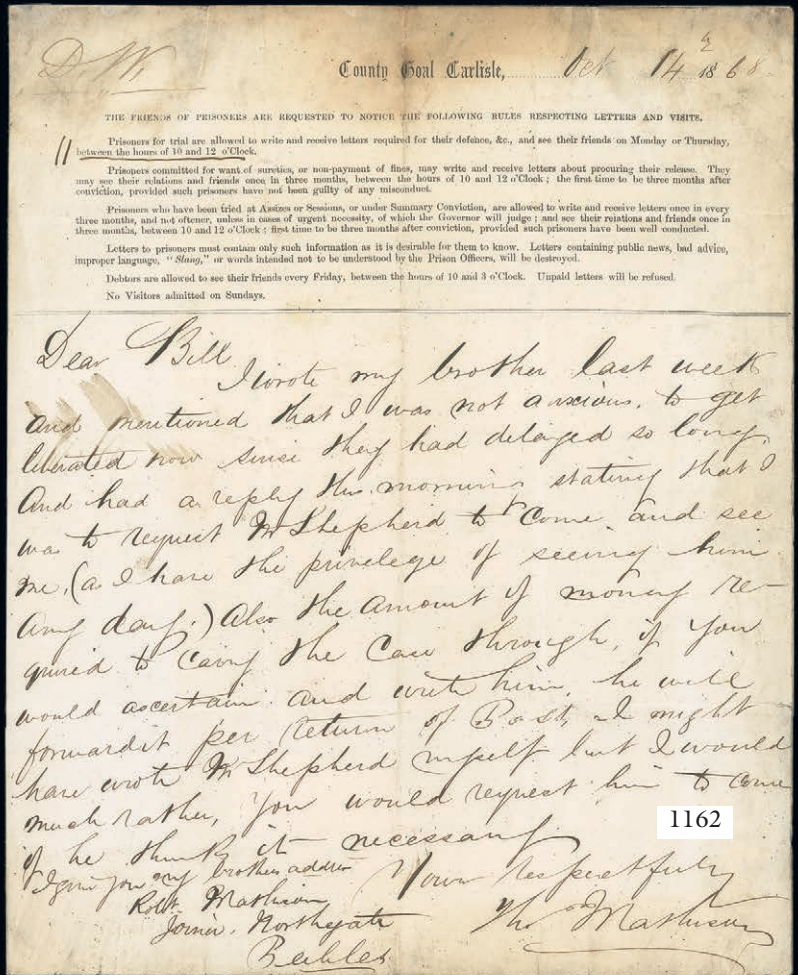 D.W.
County Goal Carlisle, Oct 14 1868
THE FRIENDS OF PRISONERS ARE REQUESTED TO NOTICE THE FOLLOWING RULES RESPECTING LETTERS AND VISITS.
Prisoners for trial are allowed to write and receive letters required for their defence, &c., and see their friends on Monday or Thursday,
between the hours of 10 and 12 o'Clock.
Prisoners committed for want of sureties, or non-payment of fines, may write and receive letters about procuring their release. They
may see their relations and friends once in three months, between the hours of 10 and 12 o'Clock; the first time to be three months after
conviction, provided such prisoners have not been guilty of any misconduct.
Prisoners who have been tried at Assizes or Sessions, or under Summary Conviction, are allowed to write and receive letters once in every
three months, and not oftener, unless in cases of urgent necessity, of which the Governor will judge; and see their relations and friends once in
three months, between 10 and 12 o'Clock; first time to be three months after conviction, provided such prisoners have been well conducted.
Letters to prisoners must contain only such information as it is desirable for them to know. Letters containing public news, bad advice,
improper language, "Slang," or words intended not to be understood by the Prison Officers, will be destroyed.
Debtors are allowed to see their friends every Friday, between the hours of 10 and 3 o'Clock. Unpaid letters will be refused.
No Visitors admitted on Sundays.
Dear Bill
I wrote my brother last week
and mentioned that I was not anxious, to get
liberated now since they had delayed so long,
And had a reply this morning stating that I
was to request Mr Shepherd to come and see
me, (as I have the privelege of seeing him
any day.) Also the amount of money re-
quired to carry the Case through, if you
would ascertain and write him, he will
forward it per return of Post, I might
have wrote Mr Shepherd myself but I would
much rather, you would request him to come
if he think it necessary
I give you my brothers address
Yours respectfully
Robt Mathison
Joiner. Northgate
Thos Mathison
Peebles
1162